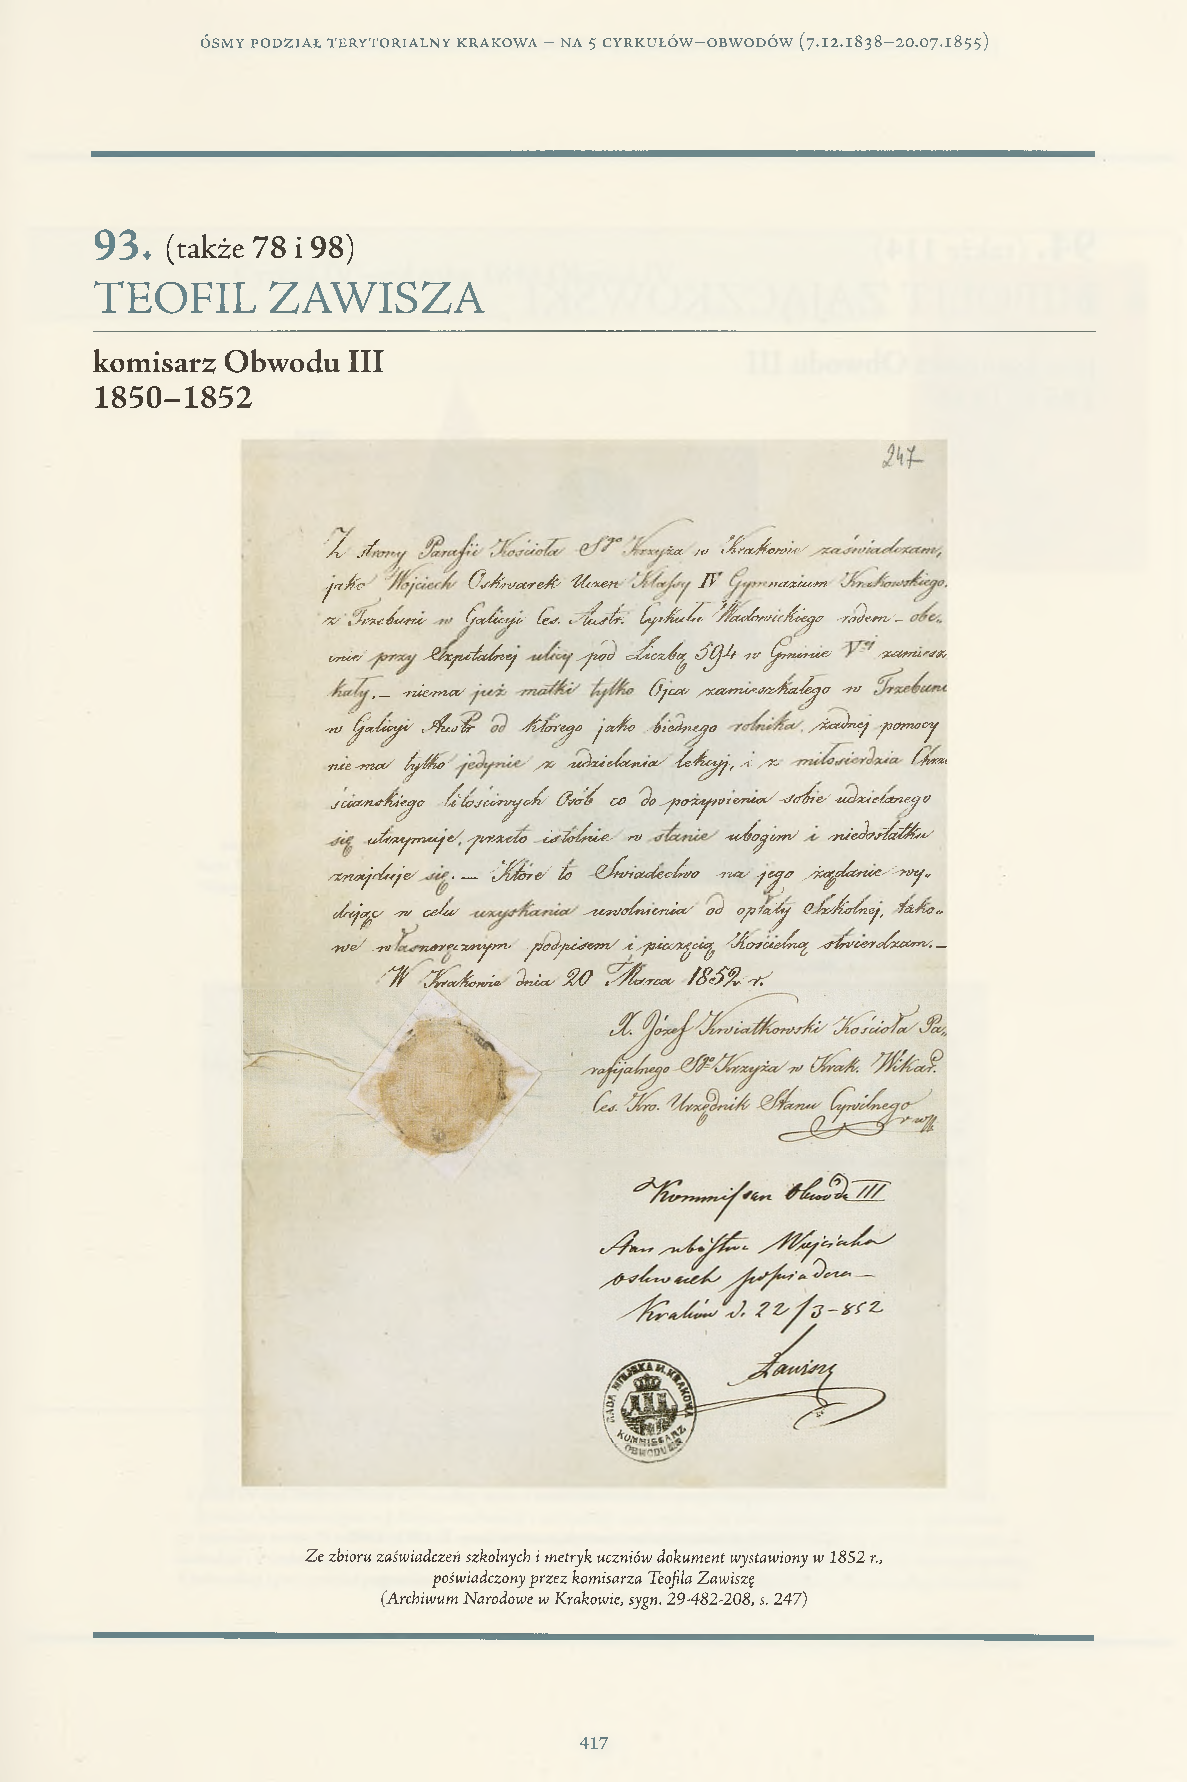 ÓSMY PODZIAŁ TERYTORIALNY KRAKOWA – NA 5 CYRKUŁÓW–OBWODÓW (7.12.1838–20.07.1855)
93. (także 78 i 98)
TEOFIL ZAWISZA
komisarz Obwodu III
1850–1852
247
Z strony Parafii Kościoła Sgo Krzyża w Krakowie zaświadczam,
jako Wojciech Oskwarek Uczen Klassy IV Gymnazium Krakowskiego,
z Trzebuni w Galicyi Ces. Austr. Cyrkułu Wadowickiego rodem – obe-
cnie przy Szpitalnej ulicy pod Liczbą 594 w Gminie Vtej zamiesz
kały, – niema już matki tylko Ojca zamieszkałego w Trzebuni
w Galicyi Austr od którego jako biednego rolnika, żadnej pomocy
nie ma tylko jedynie z udzielania lekcyj, i z miłosierdzia Chrze
ścianskiego litościwych Osób co do pożywienia sobie udzielanego
się utrzymuje, przeto istotnie w stanie ubogim i niedostatku
znajduje się. — Które to Swiadectwo na jego żądanie wy-
dając w celu uzyskania uwolnienia od opłaty Szkolnej, tako-
we własnoręcznym podpisem i pieczęcią Kościelną stwierdzam. —
W Krakowie dnia 20 Marca 1852 r.
X. Józef Kwiatkowski Kościoła Pa-
rafijalnego Sgo Krzyża w Krak. Wikar.
Ces. Kro. Urzędnik Stanu Cywilnego
Kommissarz Obwodu III
Stan ubóstwa Wojciecha
Oskwarek poświadcza —
Kraków d. 22/3 – 852
Zawisza
RADA MIEJSKA M. KRAKOWA
KOMMISSARZ
OBWODU III
Ze zbioru zaświadczeń szkolnych i metryk uczniów dokument wystawiony w 1852 r.,
poświadczony przez komisarza Teofila Zawiszę
(Archiwum Narodowe w Krakowie, sygn. 29-482-208, s. 247)
417